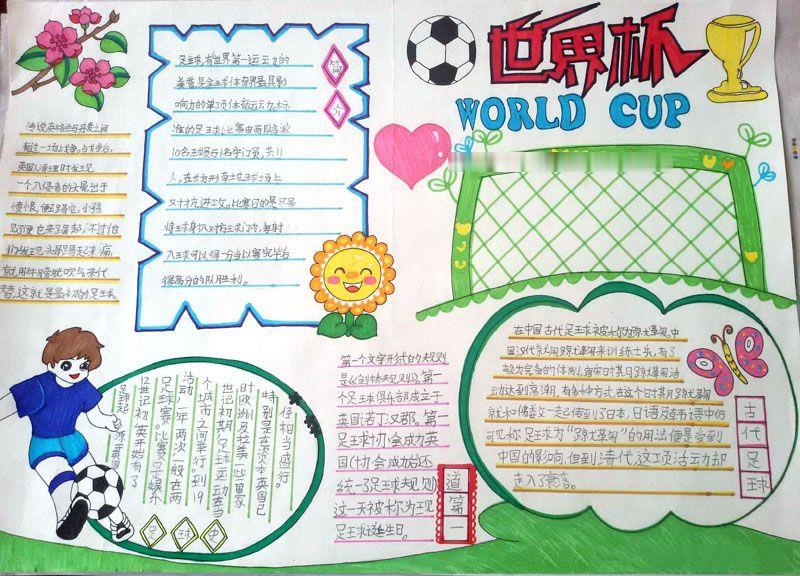 世界杯
WORLD CUP
简介
足球,有"世界第一运动"的
美誉,是全球体育界最具影
响力的单项体育运动,标
准的足球比赛由两队各派
10名球员与1名守门员,共11
人,在长方形草地球场上
对抗、进攻。比赛目的是尽量
将球身扌入对方球门内,每射
入球可以得一分当以赛完毕后
得高分的队胜利。
传说英格兰与丹麦之间
有过一场战争。战争后,
英国人清理时发现
一个入侵者的头骨出于
愤恨,便去踢它,小孩
见了便也来踢起,不过他
们发现头骨踢起来脚痛,
就用牛膀胱吹气来代
替,这就是最初的足球。
12世记初,英羊始有了
足球赛。比赛只于娱乐
活动,一年两次一般在两
个城市之间举行。到19
世记初期,足球运动在当
时欧洲及拉美一些国家
特别是在资本英国已
仔相当盛行。
足球史
第一个文字形式的规则
是《剑桥规则》。第一
个足球俱乐部成立于
英国(苦丁汉郡。第一
足球协会成功英
国(协会成功后还
统一了足球规则)
这一天被称为现
足球诞生日。
道第一
在中国古代足球被称为蹴鞠。中
国汉代就用蹴鞠来训练士乐,有了
较为完备的体制,唐宋时其月蹴鞠活
动达到高潮,有多种方式,在这个时其月蹴鞠
就和佛教一起传到了日本,日语及韦语中仍
可见称足球为"蹴鞠"的用法便是受到
中国的影响,但到清代,这项活动却
走入了衰落。
古代足球